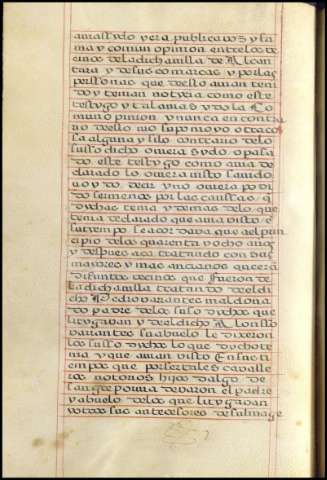 auia sydo y era publica vos y fa
ma y comun opinion entre los ve
cinos de la dicha villa de Alcan
tara y de su comarca y por las
perssonas que dello auian teni
do y tenian notiçia como este
testigo y tal auia sydo la Co
mun opinion y nunca en contra
rio dello vio supo ni oyo otra co
sa alguna y si lo contrario de lo
susso dicho oviera sydo o pasa
do este testigo como auia de
clarado lo oviera visto sauido
oydo decir y no oviera podi
do ser menos por las caussas q
dichas tenia y demas de lo que
tenia declarado que auia visto e
su tiempo se acordaua que al prin
cipio de los quarenta y ocho años
y despues aca tratando con sus
mayores y mas ancianos que era
difuntos vecinos que fueron de
la dicha villa tratando del di
cho Pedro barrantes maldona
do padre de los suso dichos que
litygauan y del dicho Alonsso
barrantes su abuelo le dixeron
lo susso dicho lo que dicho te
nia y que auian visto En sus ti
empos que por ser tales cavalle
ros notorios hijos dalgo de
sangre por tal dexaron el padre
y abuelo de los que litygauan
y otros sus antecesores de su linage